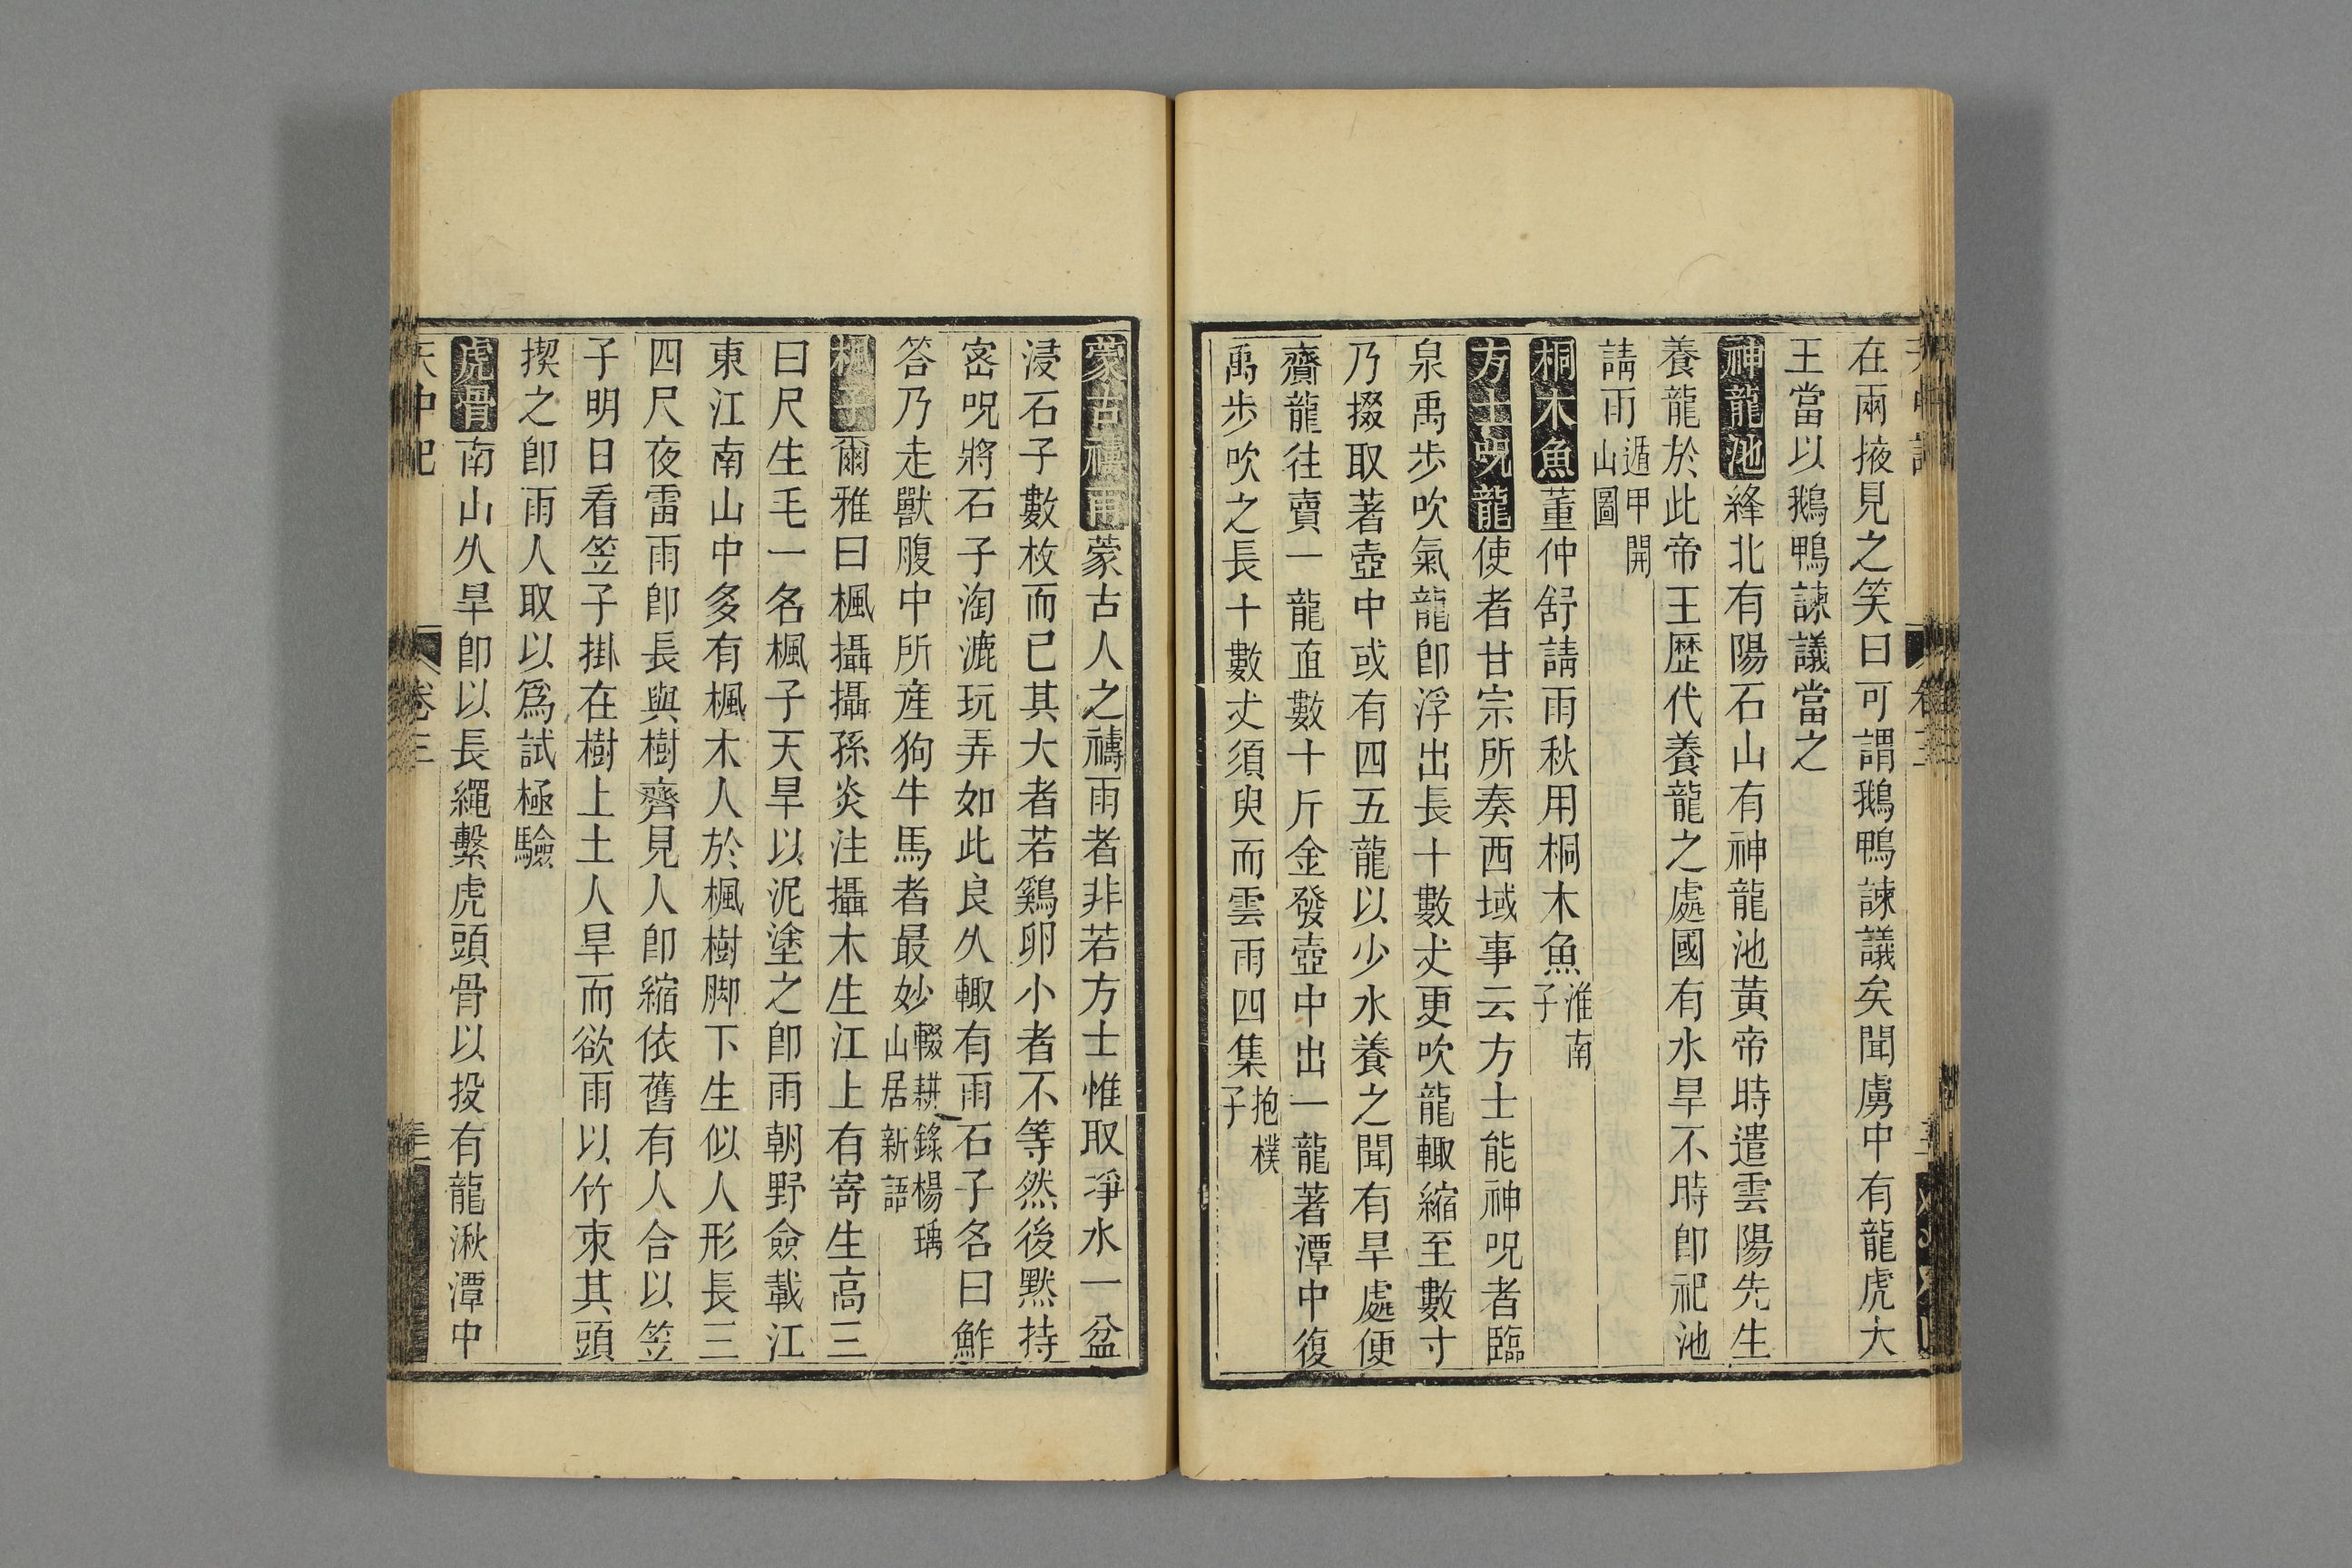 在兩掖見之笑曰可謂鵝鴨諫議矣聞虜中有龍虎大
王當以鵝鴨諫議當之
神龍池絳北有陽石山有神龍池黃帝時遣雲陽先生
養龍於此帝王歷代養龍之處國有水旱不時卽祀池
請雨遁甲開山圖
桐木魚董仲舒請雨秋用桐木魚淮南子
方士呪龍使者甘宗所奏西域事云方士能神呪者臨
泉禹步吹氣龍卽浮出長十數丈更吹龍輙縮至數寸
乃掇取著壺中或有四五龍以少水養之聞有旱處便
齎龍往賣一龍直數十斤金發壺中出一龍著潭中復
禹步吹之長十數丈須臾而雲雨四集抱樸子
蒙古禱雨蒙古人之禱雨者非若方士惟取淨水一盆
浸石子數枚而已其大者若鷄卵小者不等然後默持
密呪將石子淘漉玩弄如此良久輙有雨石子名曰鮓
答乃走獸腹中所産狗牛馬者最妙輟耕錄楊瑀山居新語
楓子爾雅曰楓攝攝孫炎注攝木生江上有寄生高三
曰尺生毛一名楓子天旱以泥塗之卽雨朝野僉載江
東江南山中多有楓木人於楓樹脚下生似人形長三
四尺夜雷雨卽長與樹齊見人卽縮依舊有人合以笠
子明日看笠子掛在樹上土人旱而欲雨以竹束其頭
揳之卽雨人取以爲試極驗
虎骨南山久旱卽以長繩繫虎頭骨以投有龍湫潭中
天中記
卷三